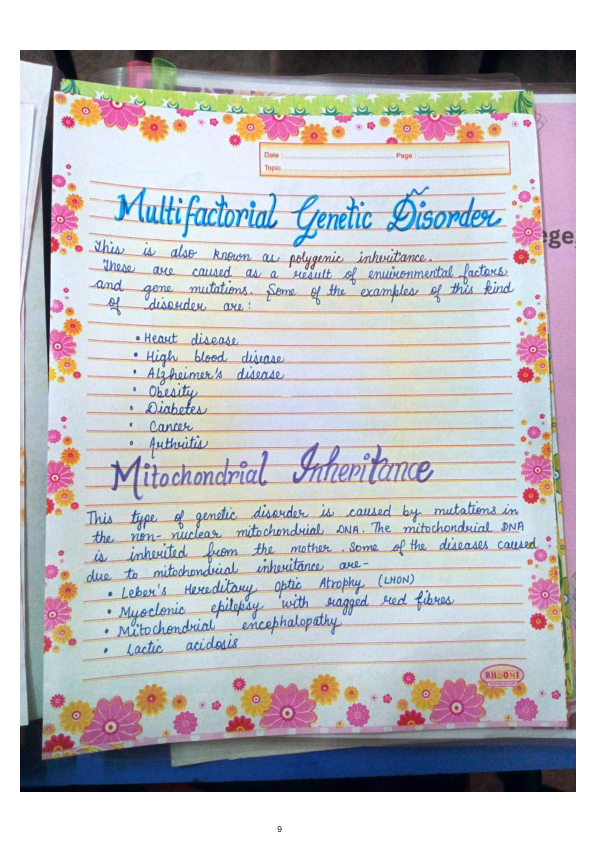 Date : Page :
Topic
Multifactorial Genetic Disorder
ege,
This is also known as polygenic inheritance.
These are caused as a result of environmental factors
and gene mutations. Some of the examples of this kind
of disorder are :
• Heart disease
• High blood disease
• Alzheimer's disease
• Obesity
• Diabetes
• Cancer
• Arthritis
Mitochondrial Inheritance
This type of genetic disorder is caused by mutations in
the non-nuclear mitochondrial DNA. The mitochondrial DNA
is inherited from the mother. Some of the diseases caused
due to mitochondrial inheritance are-
• Leber's Hereditary Optic Atrophy (LHON)
• Myoclonic epilepsy with ragged red fibres
• Mitochondrial encephalopathy
• Lactic acidosis
BHOOMI
9